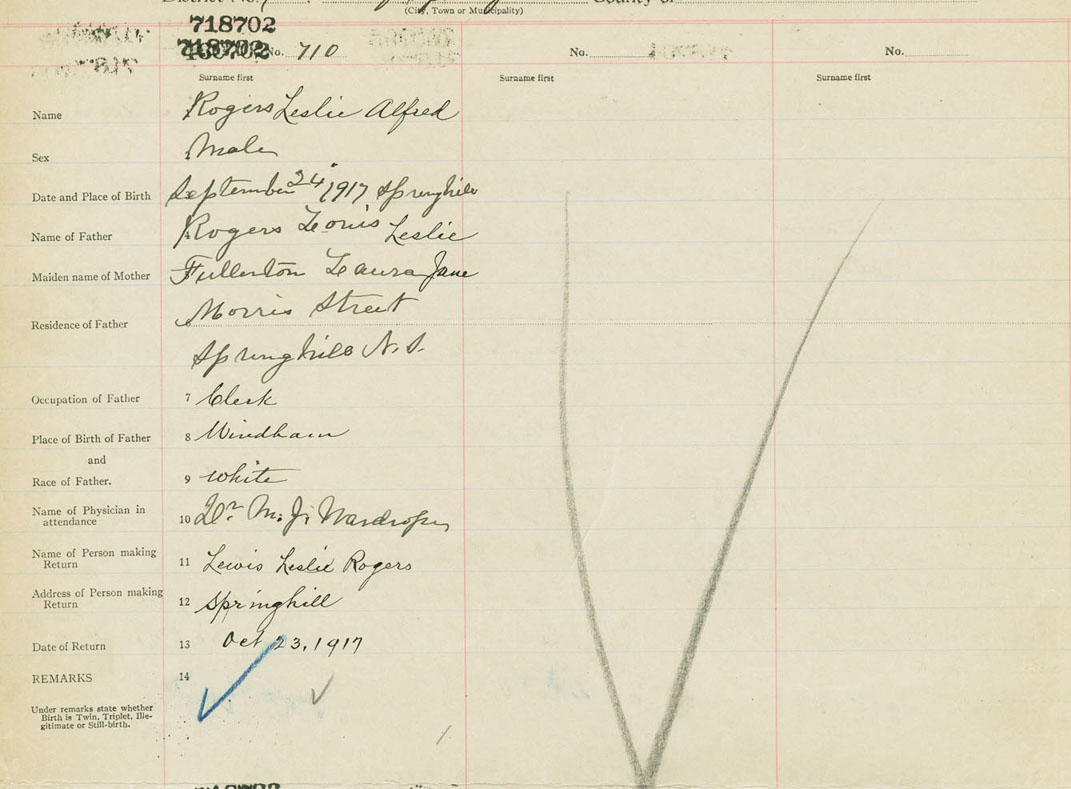 District No. County of
(City, Town or Municipality)
718702
No. 710 No. No.
Surname first Surname first Surname first
Name Rogers Leslie Alfred
Sex Male
Date and Place of Birth September 24 1917 Springhill
Name of Father Rogers Louis Leslie
Maiden name of Mother Fullerton Laura Jane
Residence of Father Morris Street
Springhill N.S.
Occupation of Father 7 Clerk
Place of Birth of Father 8 Windham
and
Race of Father. 9 White
Name of Physician in
attendance 10 Dr. M. J. Wardrope
Name of Person making
Return 11 Lewis Leslie Rogers
Address of Person making
Return 12 Springhill
Date of Return 13 Oct 23, 1917
REMARKS 14
Under remarks state whether
Birth is Twin, Triplet, Ille-
gitimate or Still-birth.